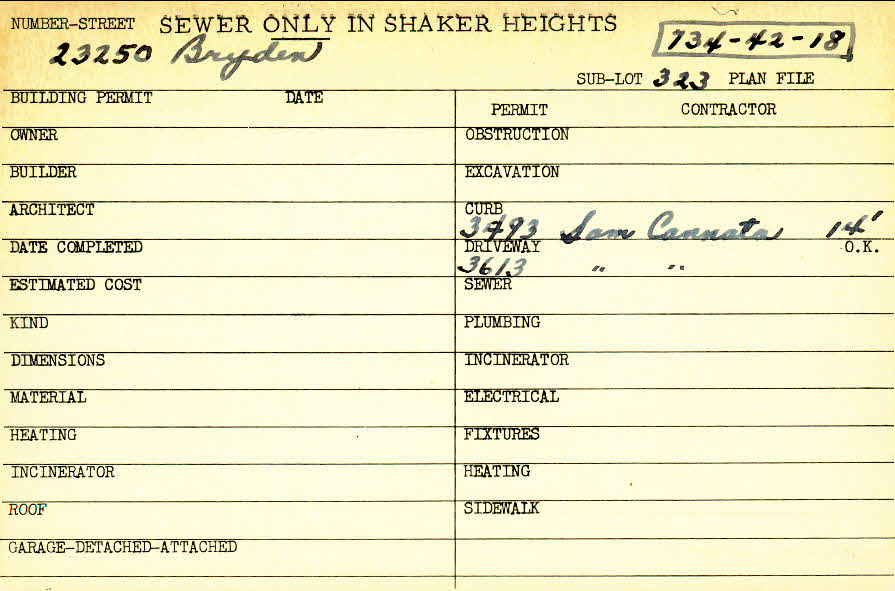 NUMBER-STREET SEWER ONLY IN SHAKER HEIGHTS
23250 Bryden 734-42-18
SUB-LOT 323 PLAN FILE
BUILDING PERMIT DATE
PERMIT CONTRACTOR
OWNER OBSTRUCTION
BUILDER EXCAVATION
ARCHITECT CURB
3493 Sam Cannata 14'
DATE COMPLETED DRIVEWAY O.K.
3613 " "
ESTIMATED COST SEWER
KIND PLUMBING
DIMENSIONS INCINERATOR
MATERIAL ELECTRICAL
HEATING FIXTURES
INCINERATOR HEATING
ROOF SIDEWALK
GARAGE-DETACHED-ATTACHED